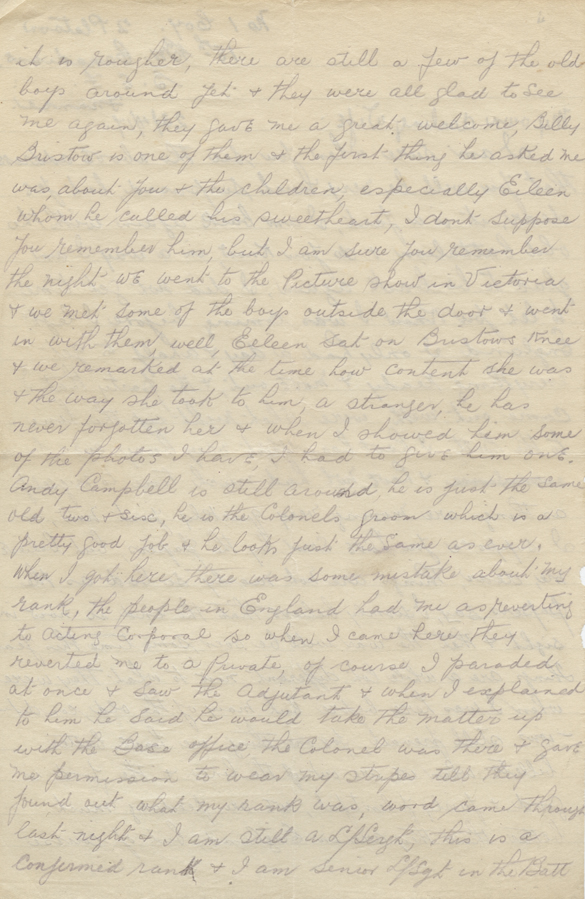 it is rougher, there are still a few of the old
boys around yet & they were all glad to see
me again, they gave me a great welcome, Billy
Bristow is one of them & the first thing he asked me
was, about you & the children, especially Eileen
whom he called his sweetheart, I dont suppose
you remember him, but I am sure you remember
the night we went to the Picture show in Victoria
& we met some of the boys outside the door & went
in with them, well, Eeleen sat on Bristows Knee
& we remarked at the time how content she was
& the way she took to him, a stranger, he has
never forgotten her & when I showed him some
of the photos I have, I had to give him one.
Andy Campbell is still around, he is just the same
old two & six, he is the Colonels groom which is a
pretty good job & he looks just the same as ever.
When I got here there was some mistake about my
rank, the people in England had me as reverting
to Acting Corporal so when I came here they
reverted me to a Private, of course I paraded
at once & saw the Adjutant & when I explained
to him he said he would take the matter up
with the Base office the Colonel was there & gave
me permission to wear my stripes till they
found out what my rank was, word came through
last night & I am still a L/Sergt, this is a
confirmed rank & I am senior L/Sgt in the Batt